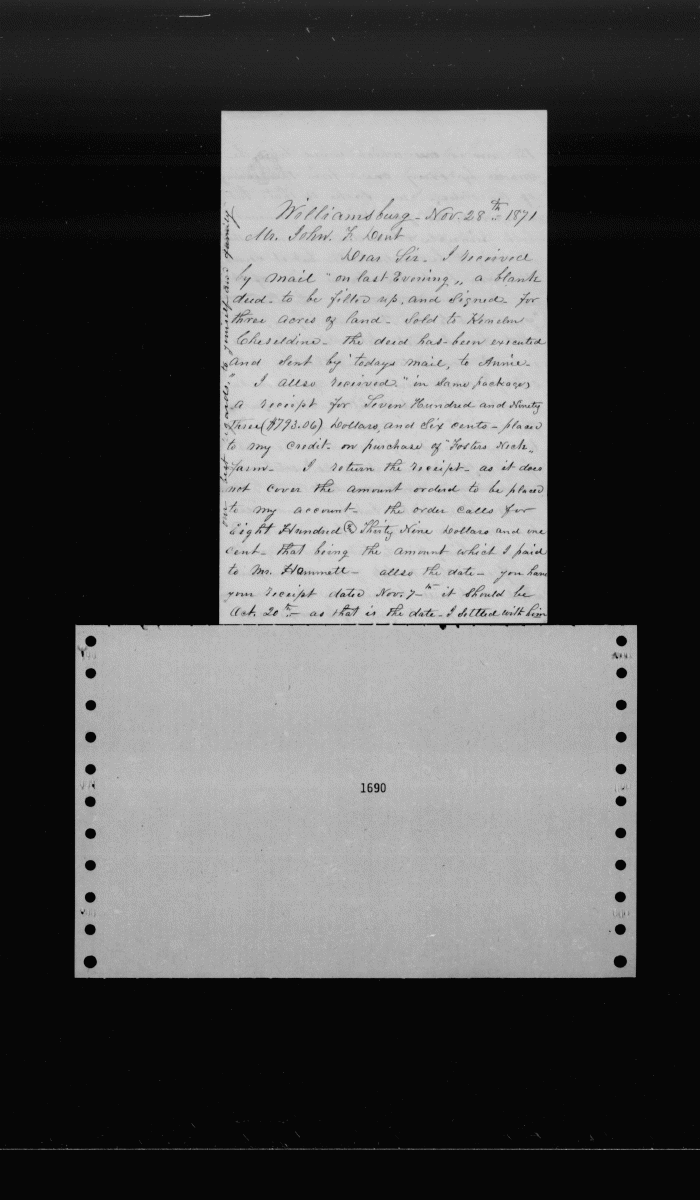 Williamsburg - Nov. 28th 1871
Mr. John. F. Dent
Dear Sir. I received
by mail "on last Evening" a blank
deed - to be filled up, and Signed - for
three acres of land - Sold to
Cheseldine - the deed has been executed
and sent by todays mail, to Annie -
I allso received "in same package"
a receipt for Seven Hundred and Ninety
Three ($793.06) Dollars, and Six cents - placed
to my credit - on purchase of "Fosters Neck"
farm - I return the receipt - as it does
not cover the amount orderd to be placed
to my account - the order calls for
Eight Hundred & Thirty Nine Dollars and one
cent - that being the amount which I paid
to Mr. Hammett - allso the date - you have
your receipt dated Nov. 7th it should be
Oct. 20th - as that is the date - I settled with him
our best regards, to yourself and family
1690